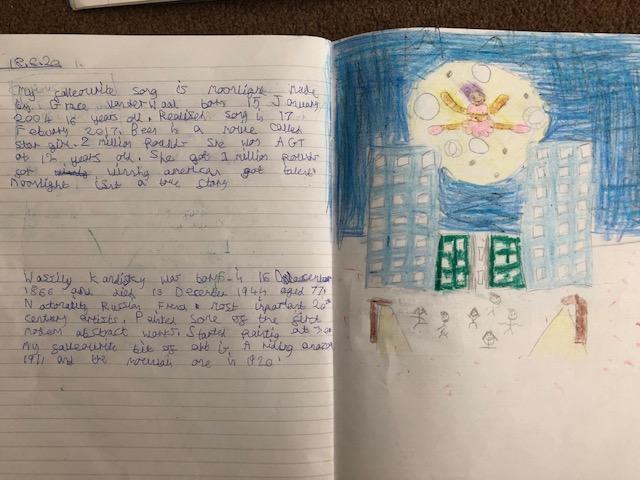 18.6.20
My favourite song is Moonlight made
by Grace Vanderwaal born 15 January
2004 16 years old. Realised song is 17
Feburry 2017. Been is a movie called
Star girl. 2 million She was AGT
at 12 years old. She got 1 million
got winning american got talent
Moonlight isnt a true story
Wassily Kandisky was born in 16 December
1866 and died 13 December 1944 aged 77.
Russian French most important 20th
century artists. Painted some of the first
modern abstract works. Started painting at 30
My favourite bit of art is A riding
1911 and the are in 1920.